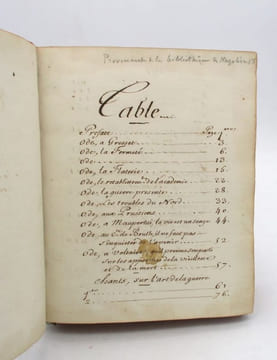 Provenant de la bibliothèque de Napoléon 1er
Table
Préface Page 1ere
Ode, a Gresset 3.
Ode, la Fermeté 6.
Ode 13.
Ode, la Flaterie 15.
Ode, le rétablissement de l'academie 22.
Ode, la guerre présente 28.
Ode, Les troubles du Nord 33.
Ode, aux Prussiens 40.
Ode, a Maupertui, la vie est un songe 44.
Ode, au Cte de Bruhl, il ne faut pas
s'inquieter de l'avenir 52
Ode, a Voltaire
sur les approches de la vieillesse
et de la mort 57.
Chants, sur l'art de la guerre
1er 61
2e 76.